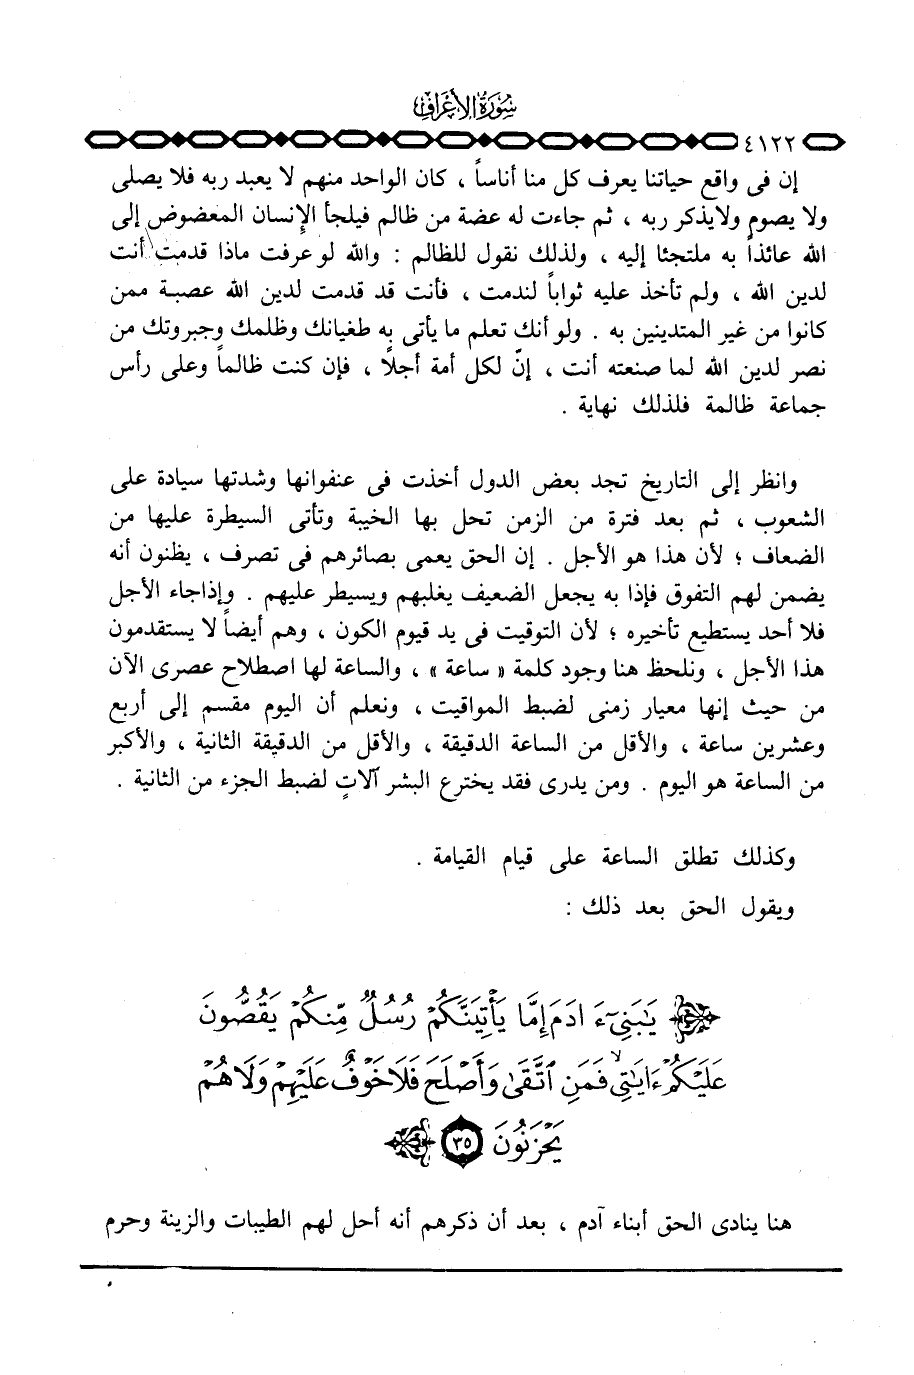 سورة الأعراف
٤١٢٢
إن فى واقع حياتنا يعرف كل منا أناساً ، كان الواحد منهم لا يعبد ربه فلا يصلى
ولا يصوم ولايذكر ربه ، ثم جاءت له عضة من ظالم فيلجأ الإنسان المعضوض إلى
الله عائذاً به ملتجئا إليه ، ولذلك نقول للظالم : والله لو عرفت ماذا قدمت أنت
لدين الله ، ولم تأخذ عليه ثواباً لندمت ، فأنت قد قدمت لدين الله عصبة ممن
كانوا من غير المتدينين به . ولو أنك تعلم ما يأتى به طغيانك وظلمك وجبروتك من
نصر لدين الله لما صنعته أنت ، إنّ لكل أمة أجلاً ، فإن كنت ظالماً وعلى رأس
جماعة ظالمة فلذلك نهاية .
وانظر إلى التاريخ تجد بعض الدول أخذت فى عنفوانها وشدتها سيادة على
الشعوب ، ثم بعد فترة من الزمن تحل بها الخيبة وتأتى السيطرة عليها من
الضعاف ؛ لأن هذا هو الأجل . إن الحق يعمى بصائرهم فى تصرف ، يظنون أنه
يضمن لهم التفوق فإذا به يجعل الضعيف يغلبهم ويسيطر عليهم . وإذاجاء الأجل
فلا أحد يستطيع تأخيره ؛ لأن التوقيت فى يد قيوم الكون ، وهم أيضاً لا يستقدمون
هذا الأجل ، ونلحظ هنا وجود كلمة « ساعة » ، والساعة لها اصطلاح عصرى الآن
من حيث إنها معيار زمنى لضبط المواقيت ، ونعلم أن اليوم مقسم إلى أربع
وعشرين ساعة ، والأقل من الساعة الدقيقة ، والأقل من الدقيقة الثانية ، والأكبر
من الساعة هو اليوم . ومن يدرى فقد يخترع البشر آلاتٍ لضبط الجزء من الثانية .
وكذلك تطلق الساعة على قيام القيامة .
ويقول الحق بعد ذلك :
يَٰبَنِىٓ ءَادَمَ إِمَّا يَأْتِيَنَّكُمْ رُسُلٌ مِّنكُمْ يَقُصُّونَ
عَلَيْكُمْ ءَايَٰتِى ۙ فَمَنِ ٱتَّقَىٰ وَأَصْلَحَ فَلَا خَوْفٌ عَلَيْهِمْ وَلَا هُمْ
يَحْزَنُونَ ٣٥
هنا ينادى الحق أبناء آدم ، بعد أن ذكرهم أنه أحل لهم الطيبات والزينة وحرم